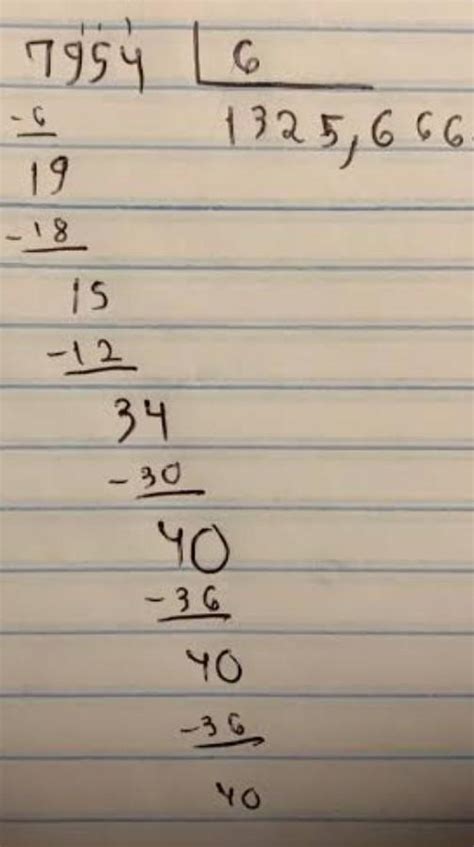 7954 6
-6 1325,666
19
-18
15
-12
34
-30
40
-36
40
-36
40